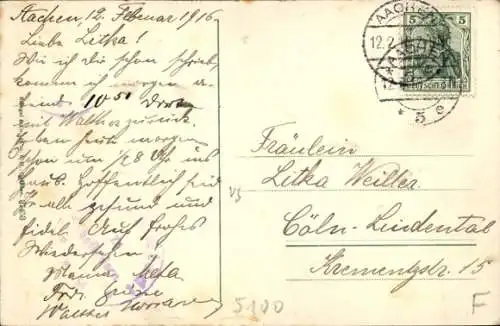 Aachen, 12. Februar 1916
Liebe Litka!
Wie ich dir schon schrieb,
komme ich morgen a-
bend 10 50
mit Walther zurück.
heute morgen
schon um 1/2 8 Uhr ins
Haus. Hoffentlich seid
Ihr alle gesund und
fidel. Auf frohes
Wiedersehen.
Walther
AACHEN
12.2
* 5 e
5 5
DEUTSCHES REICH
Fräulein
Litka Weiller
Cöln-Lindental
Krementzstr. 15
5100
F